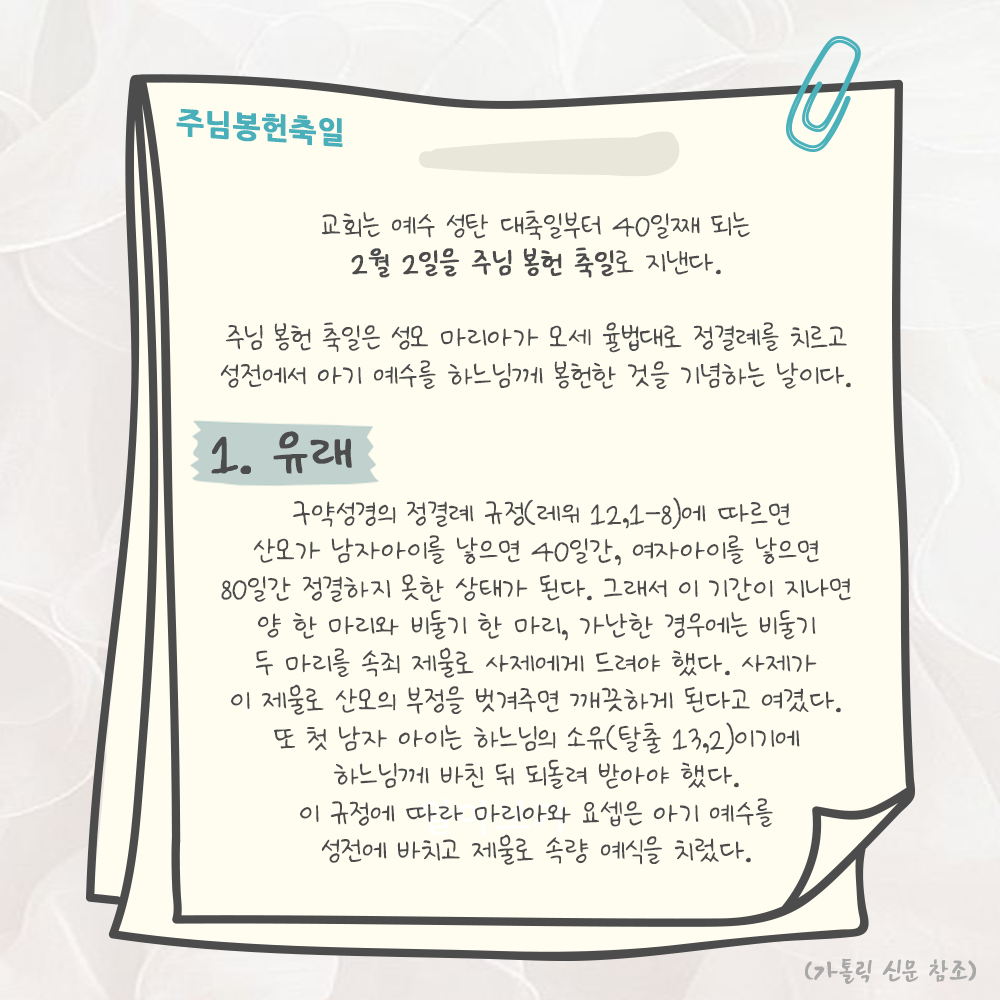 주님봉헌축일
교회는 예수 성탄 대축일부터 40일째 되는
2월 2일을 주님 봉헌 축일로 지낸다.
주님 봉헌 축일은 성모 마리아가 모세 율법대로 정결례를 치르고
성전에서 아기 예수를 하느님께 봉헌한 것을 기념하는 날이다.
1. 유래
구약성경의 정결례 규정(레위 12,1-8)에 따르면
산모가 남자아이를 낳으면 40일간, 여자아이를 낳으면
80일간 정결하지 못한 상태가 된다. 그래서 이 기간이 지나면
양 한 마리와 비둘기 한 마리, 가난한 경우에는 비둘기
두 마리를 속죄 제물로 사제에게 드려야 했다. 사제가
이 제물로 산모의 부정을 벗겨주면 깨끗하게 된다고 여겼다.
또 첫 남자 아이는 하느님의 소유(탈출 13,2)이기에
하느님께 바친 뒤 되돌려 받아야 했다.
이 규정에 따라 마리아와 요셉은 아기 예수를
성전에 바치고 제물로 속량 예식을 치렀다.
(가톨릭 신문 참조)